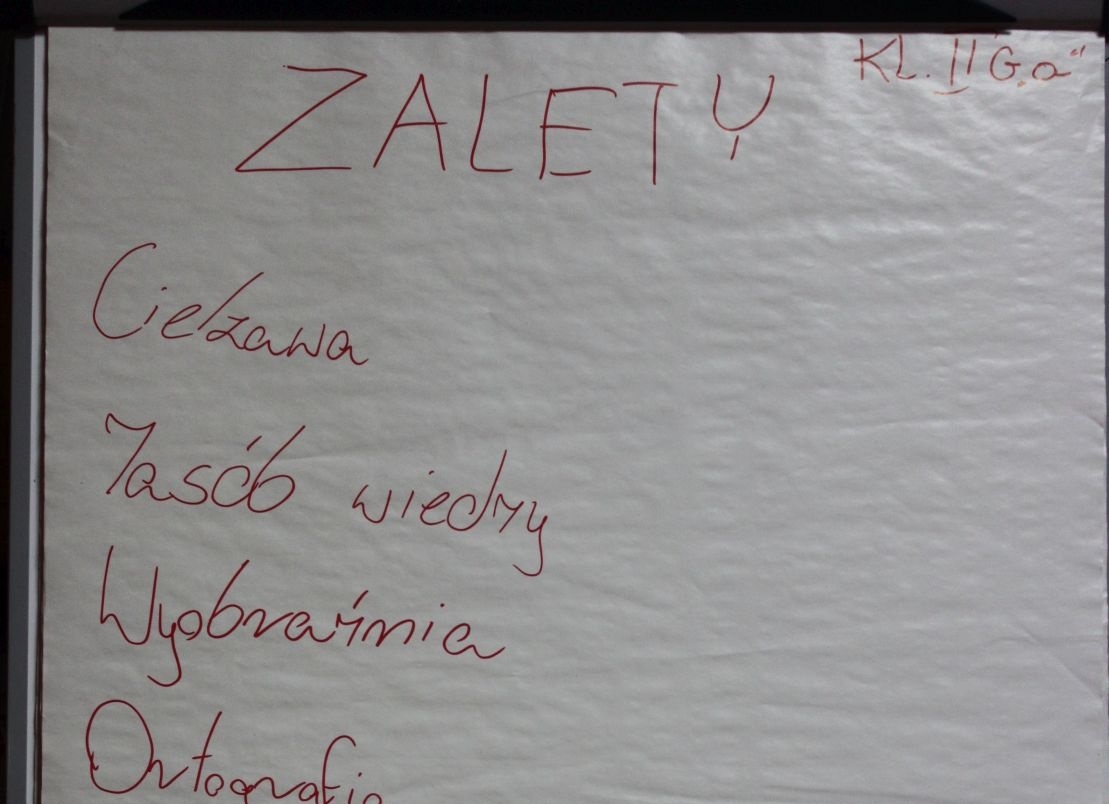 KL. II G.a"
ZALETY
Ciekawa
Zasób wiedzy
Wyobraźnia
Ortografia